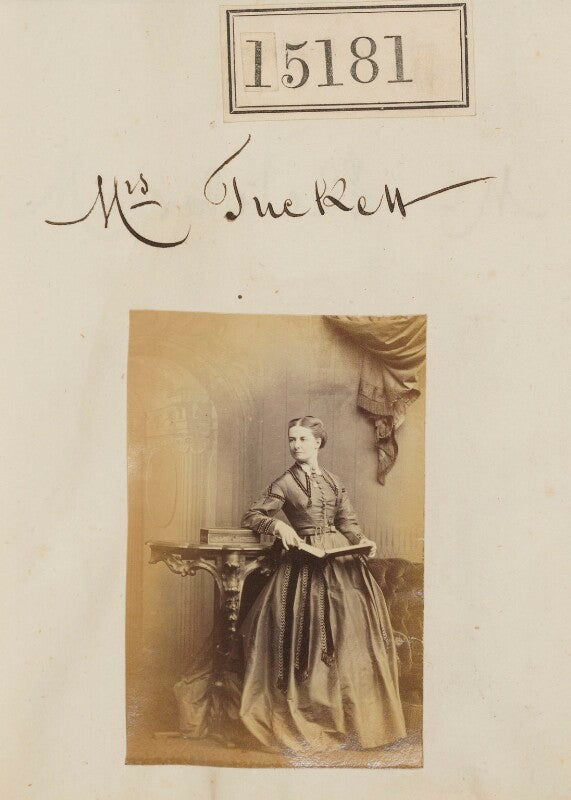 15181
Mrs Tuckett